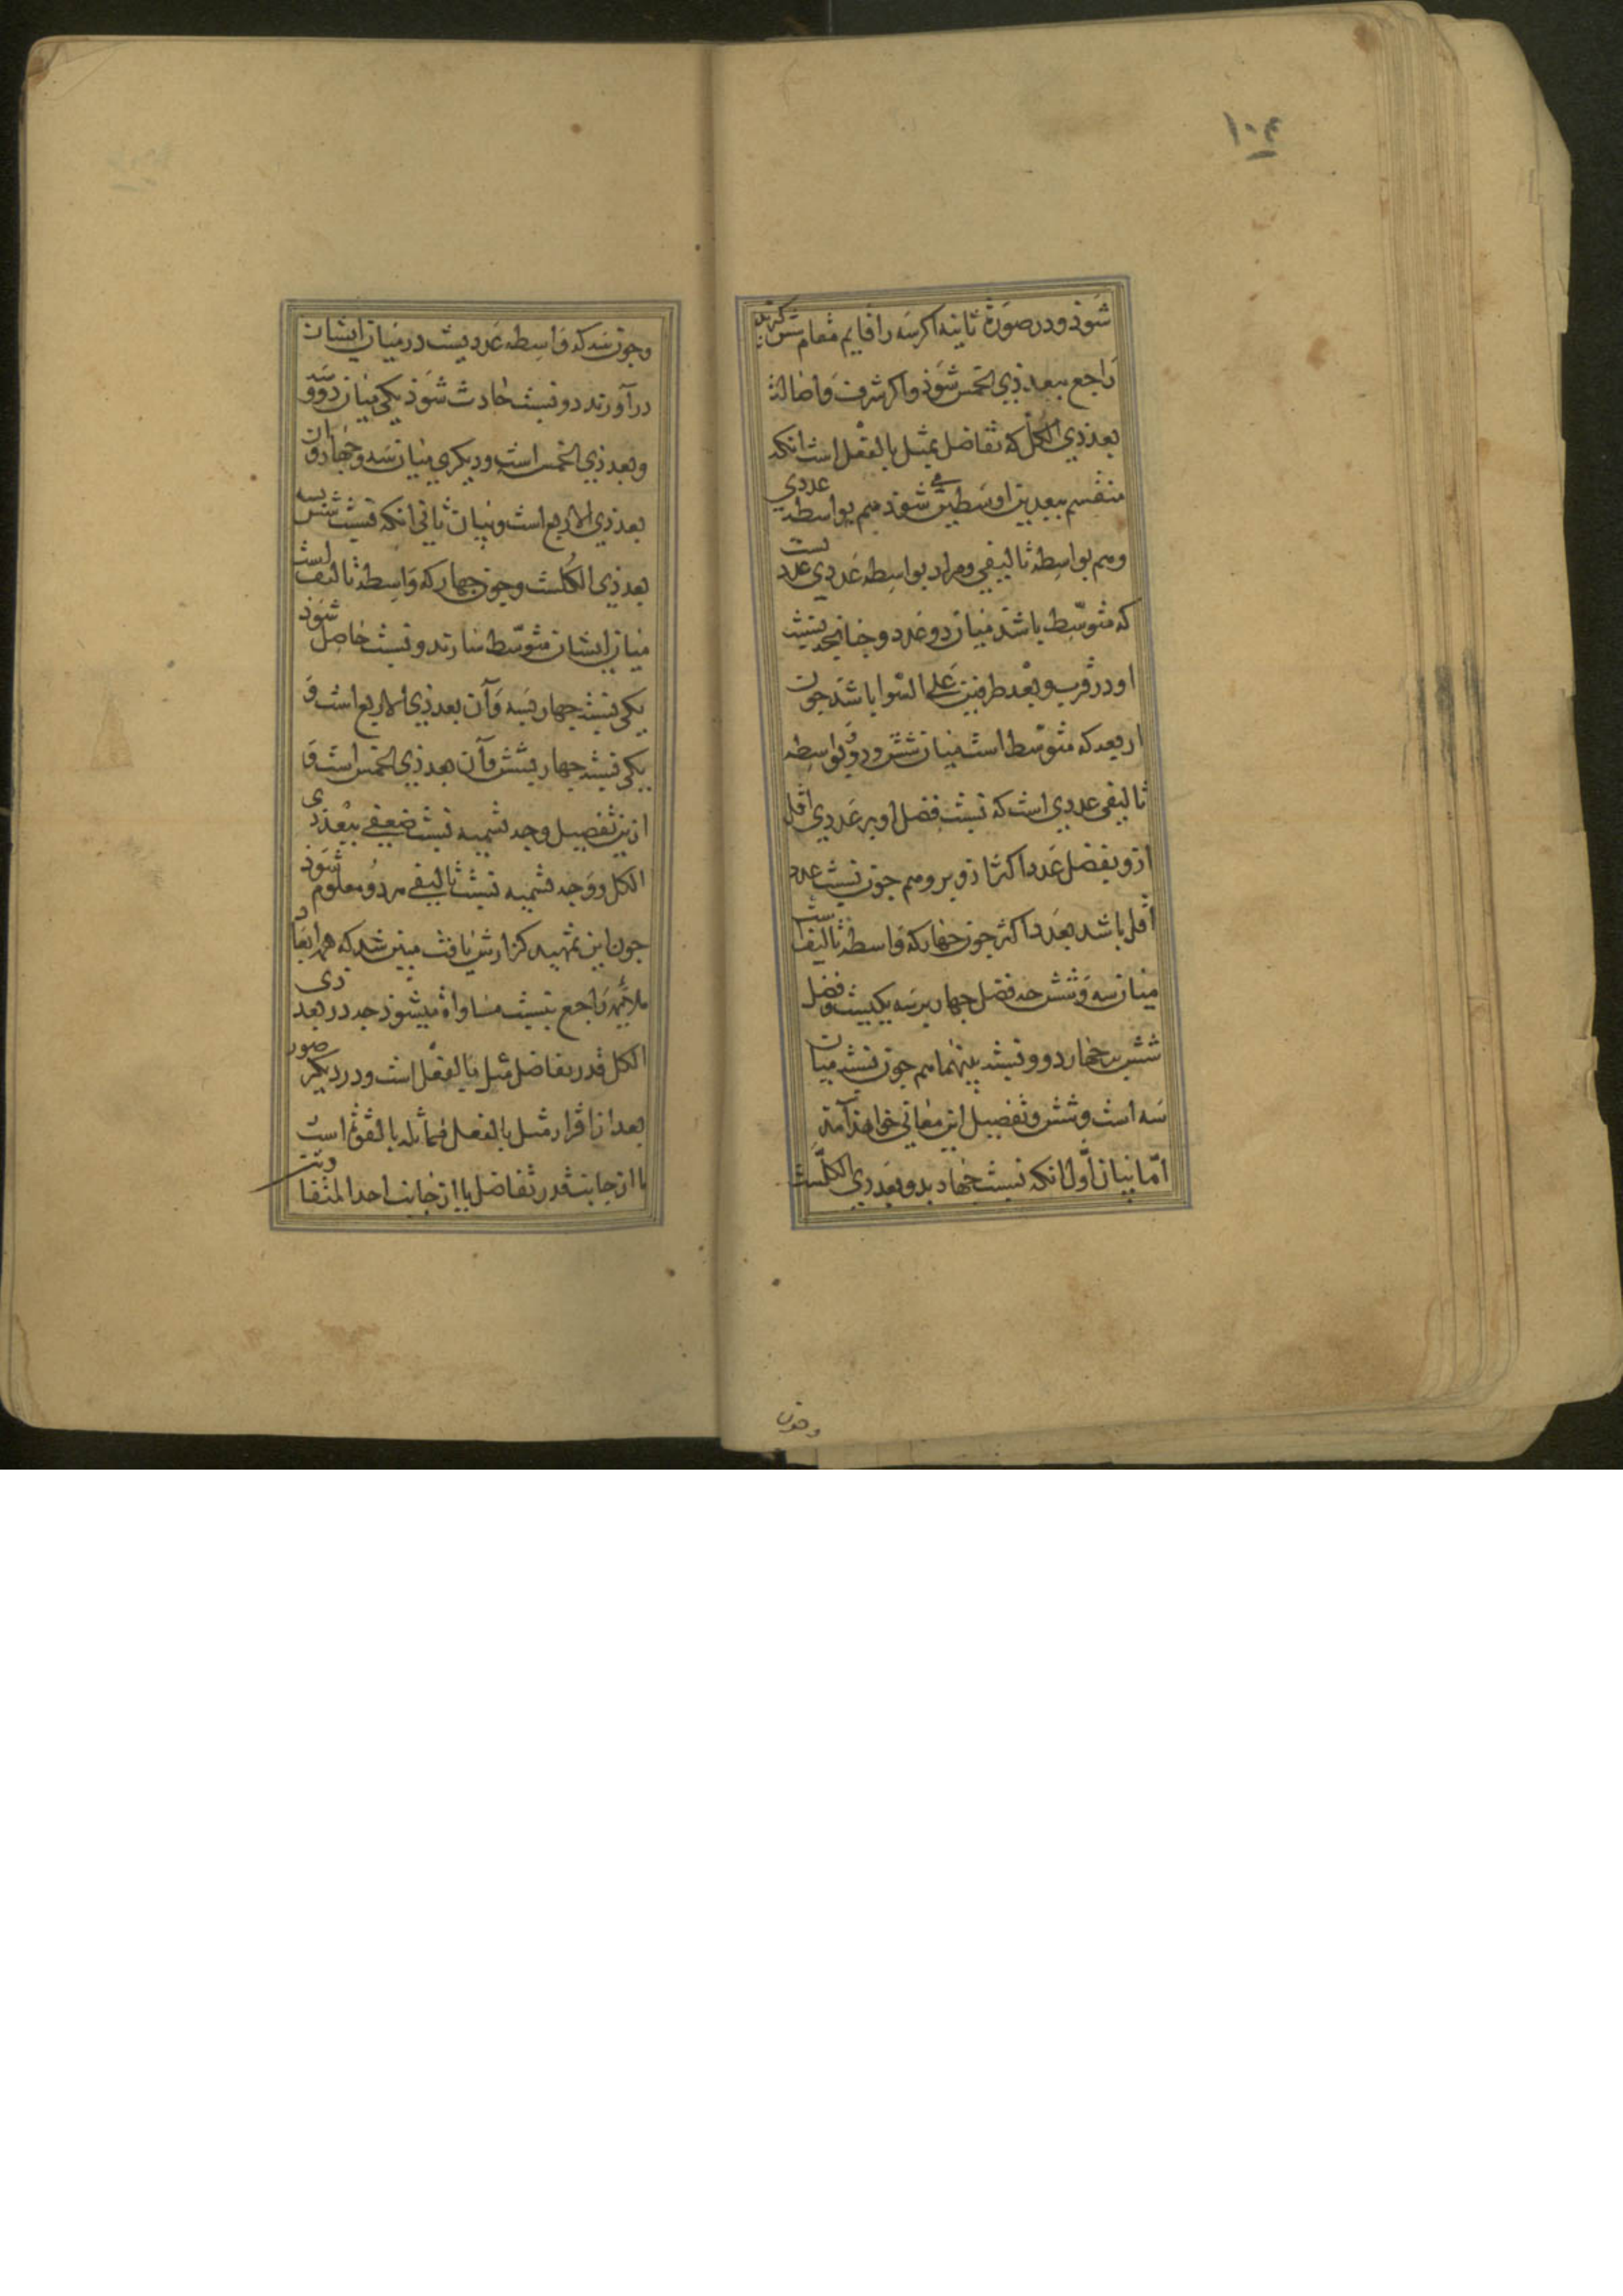 ۱۰۴
شوذ و در صورة ثانیه اکر سه را قایم مقام شش کرند
راجع ببعد ذی الخمس شوذ و اکر شرف و اضالة
بعد ذی الکل که تفاضل بمثل بالفعل است انکه
منقسم ببعدین اوسطین شوذ هم بواسطه عددی
و هم بواسطه تالیفی و مراد بواسطه عددی عددیست
که متوسط باشد میان دو عدد و چنانچه نسبت
او در قرب و بعد طرفین علی السوا باشد جون
اربعه که متوسط است میان شش و دو و بواسطه
تالیفی عددی است که نسبت فضل او بر عددی اقل
ازو بفضل عدد اکثر ازو برو هم جون نسبت عدد
اقل باشد بعدد اکثر جون جهار که واسطه تالیفیست
میان سه و شش جه فضل جهار بر سه یکیست و فضل
شش بر جهار دو و نسبت بینهما هم جون نسبت میان
سه است و شش و تفصیل این معانی خواهذ آمد
اما بیان اول انکه نسبت جهار بدو بعد ذی الکلست
وجون
وجون سه که واسطه عددیست در میان ایشان
در آورند دو نسبت حادث شوذ یکی میان دو و سه
و بعد ذی الخمس است و دیکری میان سه و جهار و ان
بعد ذی الاربع است و بیان ثانی انکه نسبت شش بسه
بعد ذی الکلست وجون جهار که واسطه تالیفیست
میان ایشان متوسط سازند دو نسبت حاصل شوذ
یکی نسبت جهار بسه و آن بعد ذی الاربع است و
یکی نسبت جهار بشش و آن بعد ذی الخمس است و
ازین تفصیل وجه تسمیه نسبت ضعفی ببعد ذی
الکل و وجه تسمیه نسبت تالیفی هر دو معلوم شوذ
جون این تمهید کزارش یافت مبین شد که همه ابعاد
ملایمه راجع بنسبت مساواة میشوذ جه در بعد ذی
الکل قدر تفاضل مثل بالفعل است و در دیکر صور
بعد از اقرار مثل بالفعل مماثله بالقوة است
یا از جانب قدر تفاضل یا از جانب احد المتفا